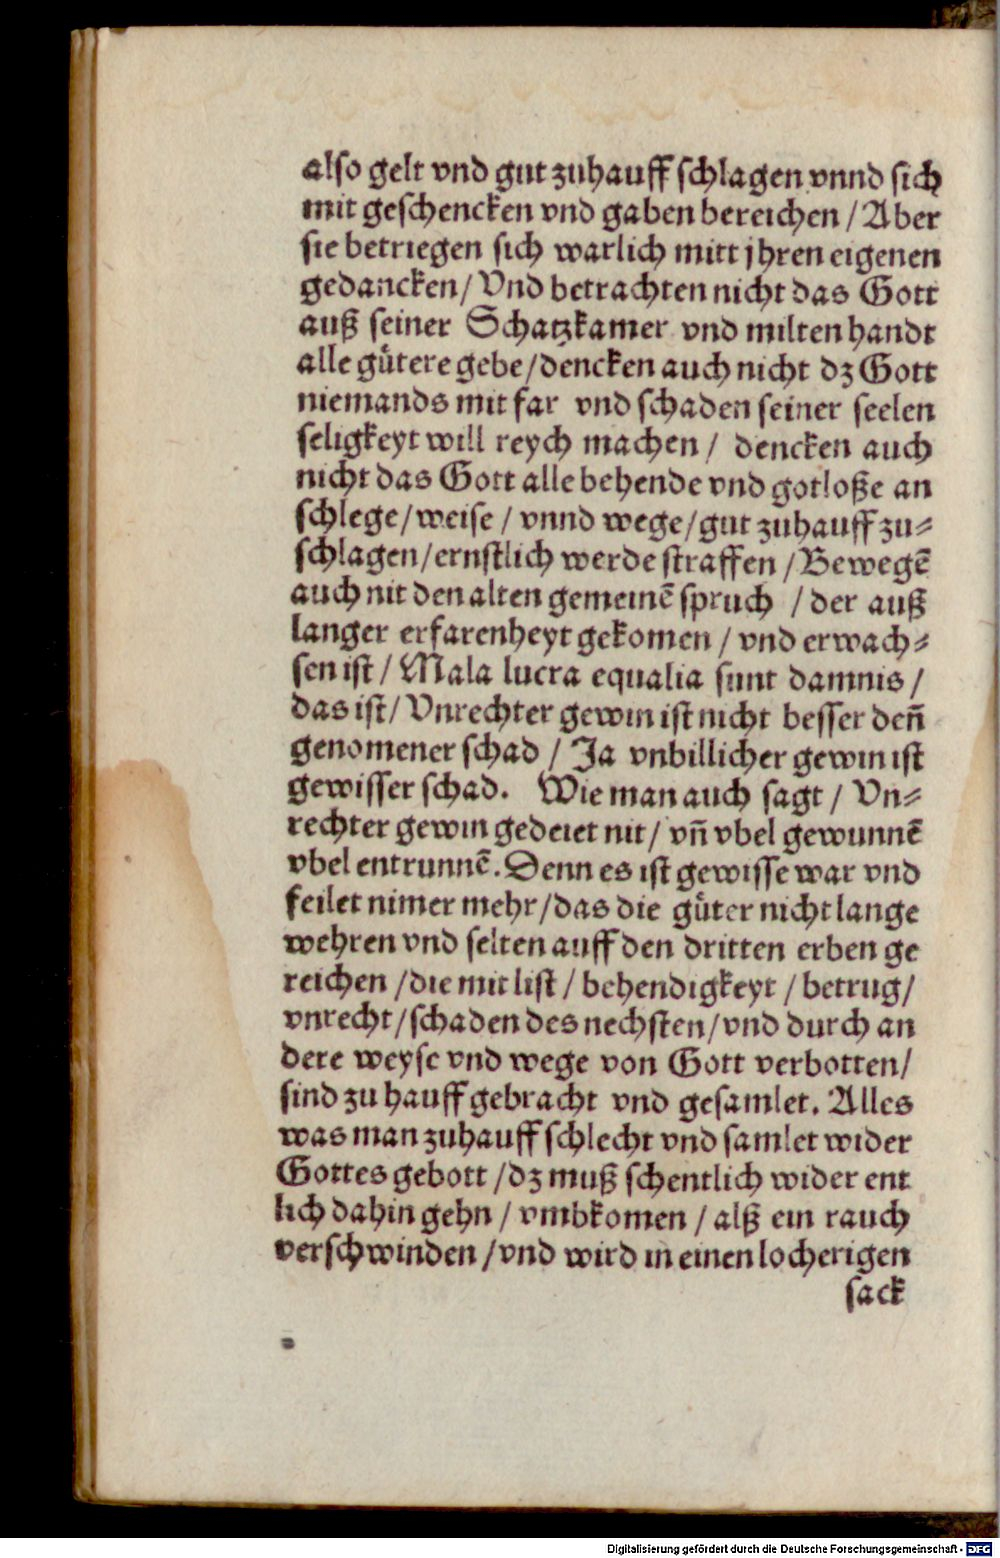 also gelt vnd gut zuhauff schlagen vnnd sich
mit geschencken vnd gaben bereichen / Aber
sie betriegen sich warlich mitt jhren eigenen
gedancken / Vnd betrachten nicht das Gott
auß seiner Schatzkamer vnd milten handt
alle guͤtere gebe / dencken auch nicht dz Gott
niemands mit far vnd schaden seiner seelen
seligkeyt will reych machen / dencken auch
nicht das Gott alle behende vnd gotloße an
schlege / weise / vnnd wege / gut zuhauff zu⸗
schlagen / ernstlich werde straffen / Bewegẽ
auch nit den alten gemeinẽ spruch / der auß
langer erfarenheyt gekomen / vnd erwach⸗
sen ist / Mala lucra equalia sunt damnis /
das ist / Vnrechter gewin ist nicht besser deñ
genomener schad / Ja vnbillicher gewin ist
gewisser schad. Wie man auch sagt / Vn⸗
rechter gewin gedeiet nit / vñ vbel gewunnẽ
vbel entrunnẽ. Denn es ist gewisse war vnd
feilet nimer mehr / das die guͤter nicht lange
wehren vnd selten auff den dritten erben ge
reichen / die mit list / behendigkeyt / betrug /
vnrecht / schaden des nechsten / vnd durch an
dere weyse vnd wege von Gott verbotten /
sind zu hauff gebracht vnd gesamlet. Alles
was man zuhauff schlecht vnd samlet wider
Gottes gebott / dz muß schentlich wider ent
lich dahin gehn / vmbkomen / alß ein rauch
verschwinden / vnd wird in einen locherigen
sack
Digitalisierung gefördert durch die Deutsche Forschungsgemeinschaft - DFG